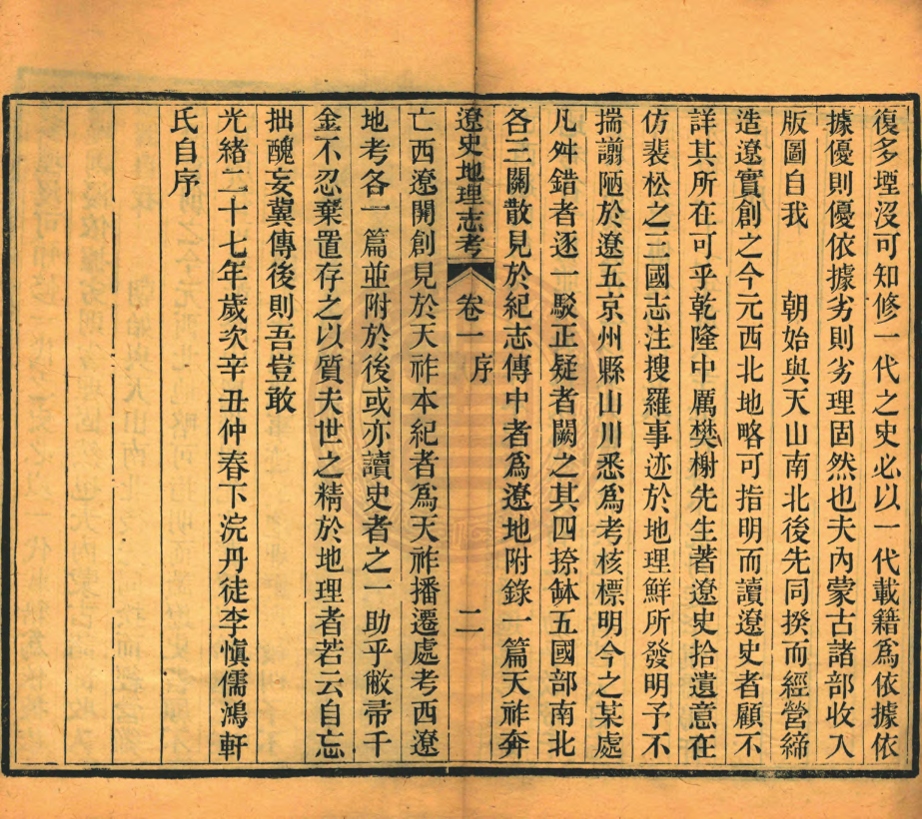 復多堙沒可知修一代之史必以一代載籍爲依據依
據優則優依據劣則劣理固然也夫內蒙古諸部收入
版圖自我　朝始與天山南北後先同揆而經營締
造遼實創之今元西北地略可指明而讀遼史者顧不
詳其所在可乎乾隆中厲樊榭先生著遼史拾遺意在
仿裴松之三國志注搜羅事迹於地理鮮所發明予不
揣謭陋於遼五京州縣山川悉爲考核標明今之某處
凡舛錯者逐一駁正疑者闕之其四捺鉢五國部南北
各三關散見於紀志傳中者爲遼地附錄一篇天祚奔
遼史地理志考　卷一　序　二
亡西遼開創見於天祚本紀者爲天祚播遷處考西遼
地考各一篇並附於後或亦讀史者之一助乎敝帚千
金不忍棄置存之以質夫世之精於地理者若云自忘
拙醜妄冀傳後則吾豈敢
光緒二十七年歲次辛丑仲春下浣丹徒李愼儒鴻軒
氏自序